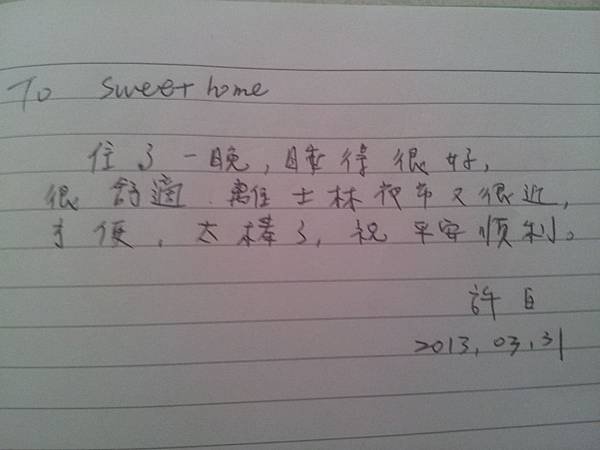 To sweet home
住了一晚,睡得很好,
很舒適.離 士林夜市又很近,
方便,太棒了,祝平安順利。
許
2013.03.31